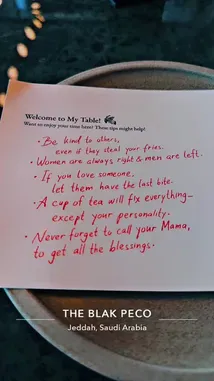 Welcome to My Table!
Want to enjoy your time here? These tips might help!
• Be kind to others,
even if they steal your fries.
• Women are always right & men are left.
• If you love someone,
let them have the last bite.
• A cup of tea will fix everything—
except your personality.
• Never forget to call your Mama,
to get all the blessings.
THE BLAK PECO
Jeddah, Saudi Arabia